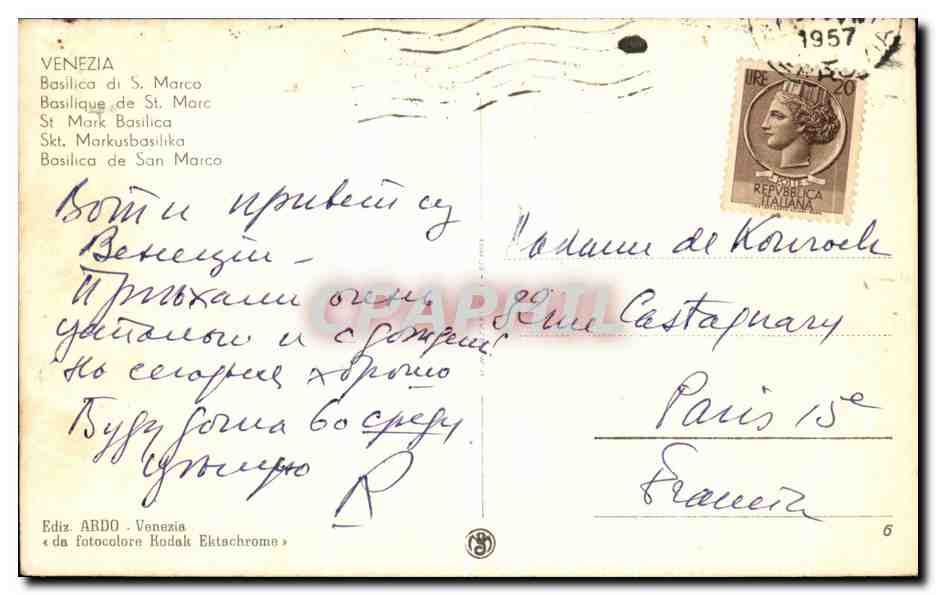 VENEZIA
Basilica di S. Marco
Basilique de St. Marc
St Mark Basilica
Skt. Markusbasilika
Basilica de San Marco
1957
LIRE 20
POSTE
REPVBBLICA
ITALIANA
Вот и привет из
Венеции –
Приѣхали очень
усталыи и с дождем
Но сегодня хорошо
Буду дома во среду
цѣлую
R
Madame de
rue Castagnary
Paris 15e
Francia
CPAPHIL
Ediz. ARDO - Venezia
« da fotocolore Kodak Ektachrome »
6